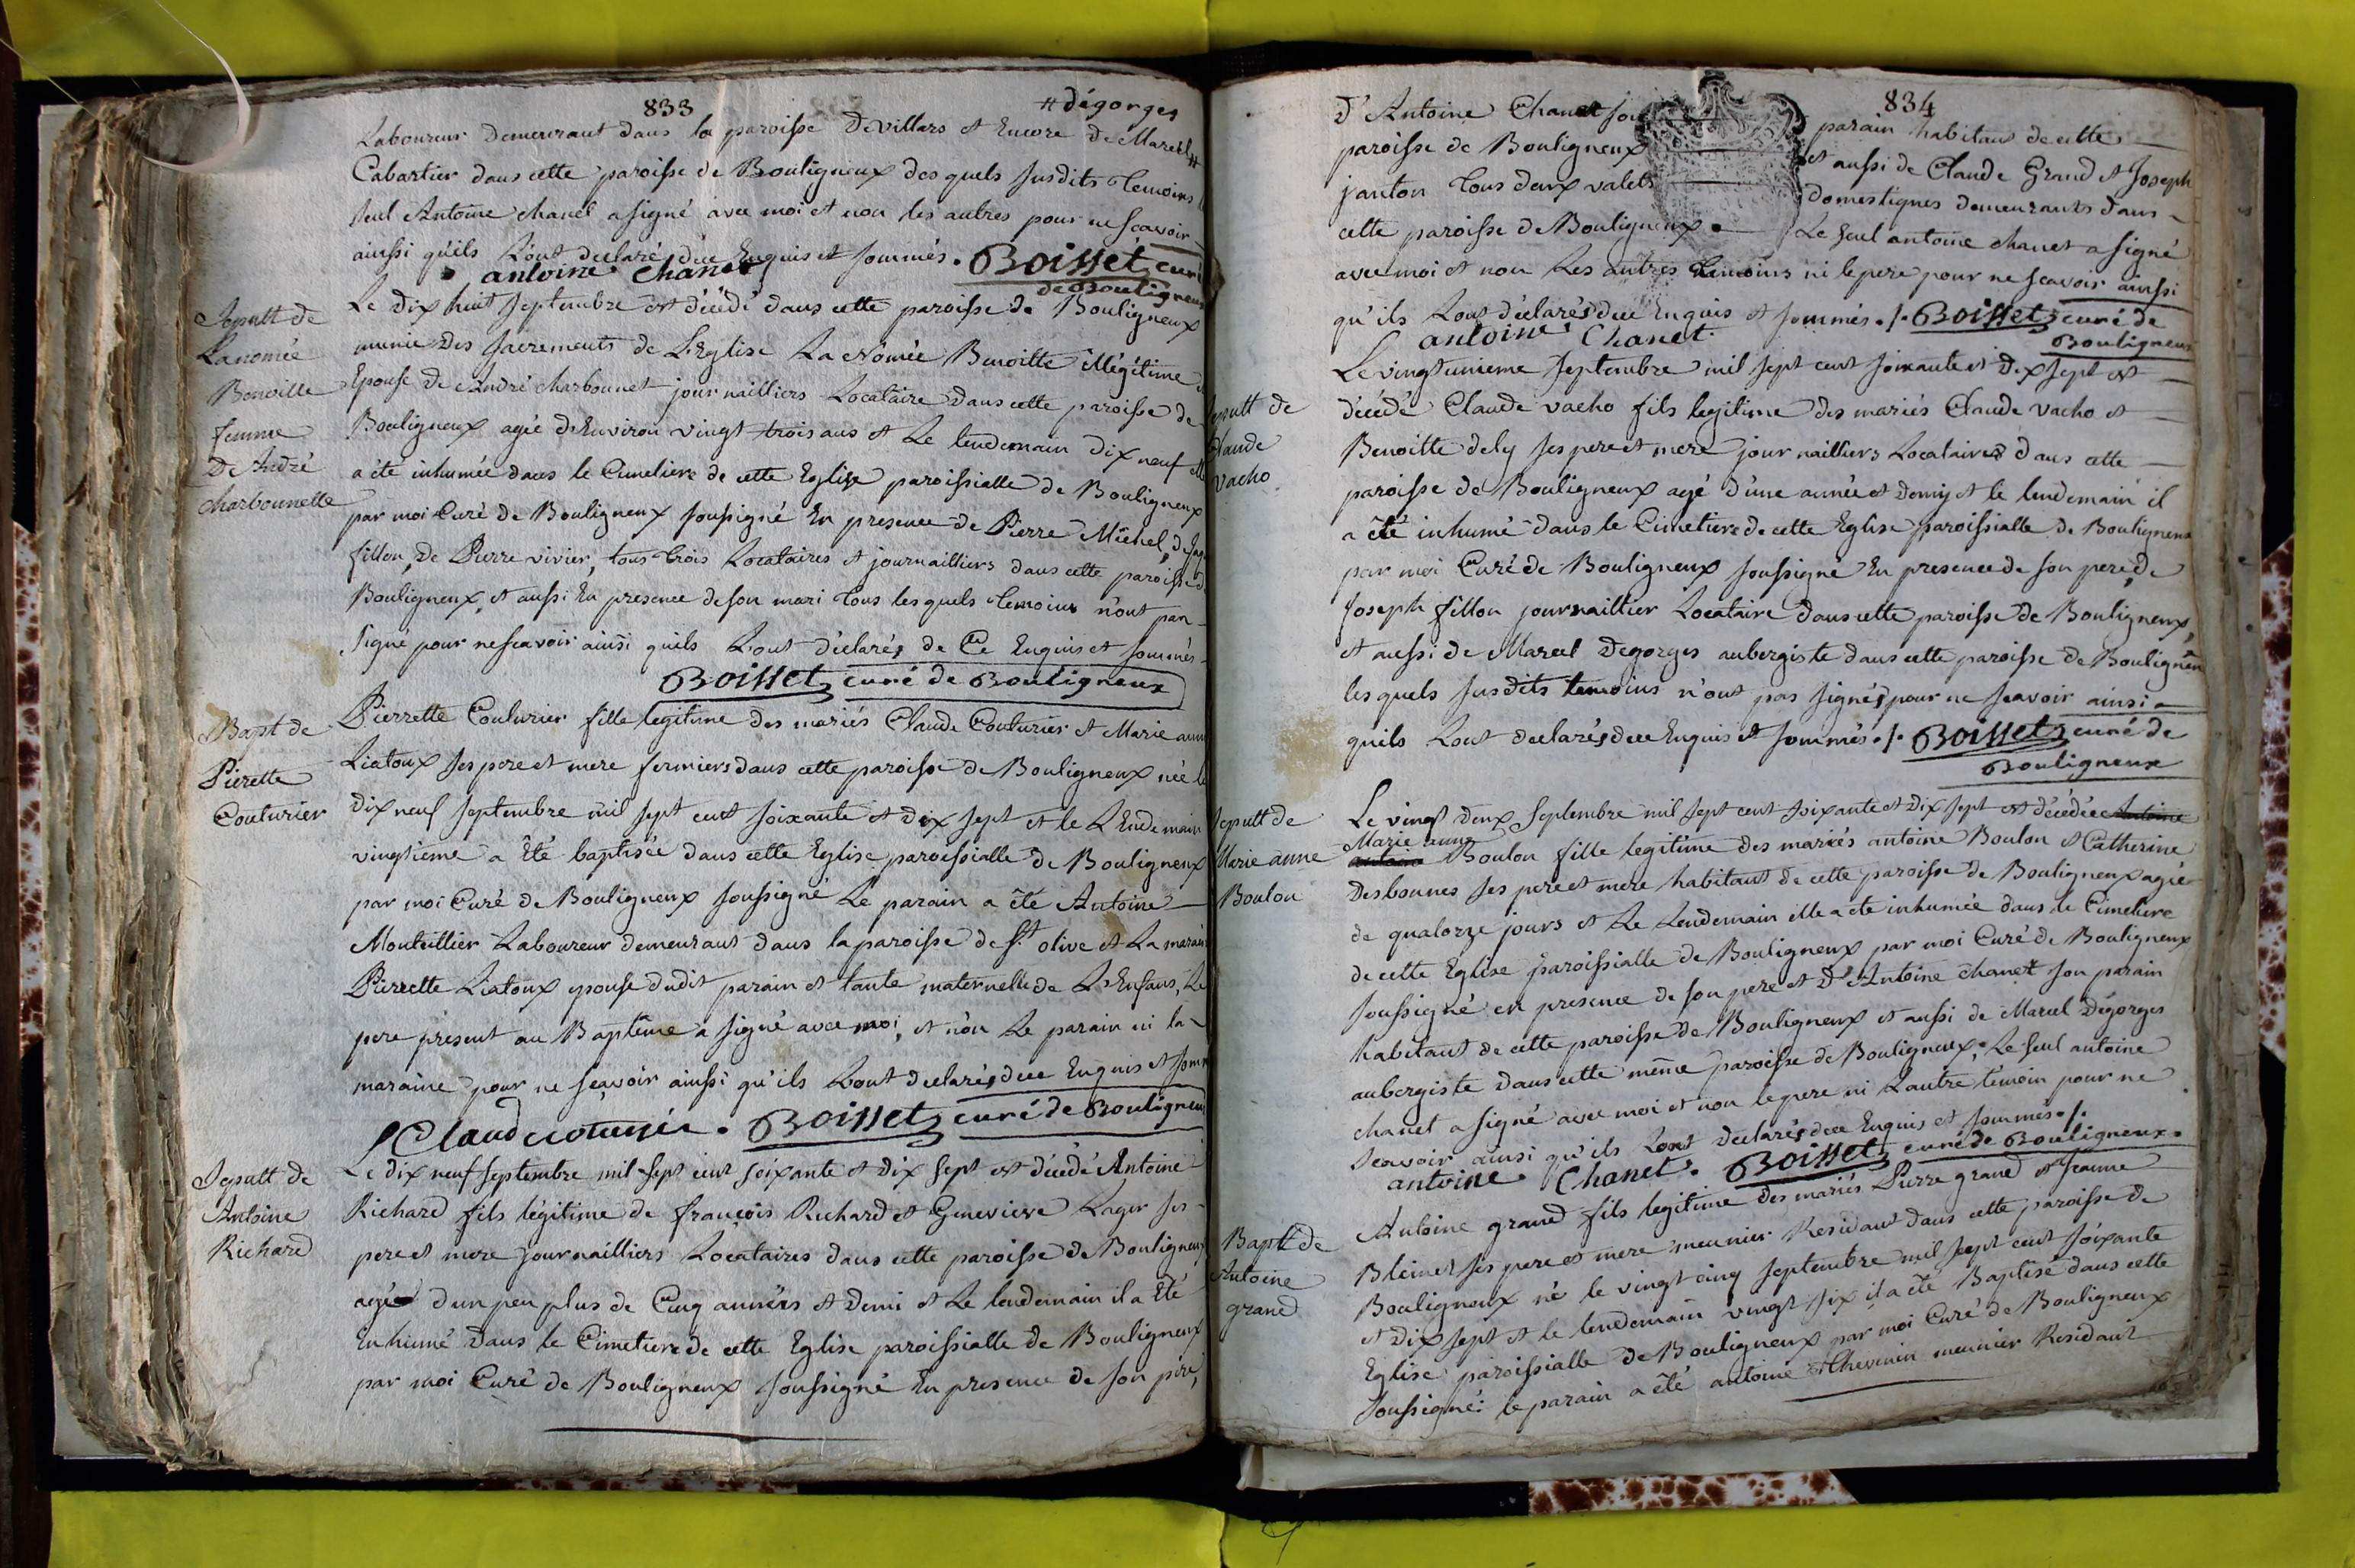 833
# dégorges
Laboureur Demeurant dans la paroisse De villars et Encore de Marcel #
Cabartier dans cette paroisse de Bouligneux des quels susdits temoins
seul Antoine chanel a signé avec moi et non les autres pour ne scavoir
ainssi qu'ils L'ont declaré d'ce Enquis et sommés. Boisset curé
antoine chanet
de Bouligneux
Sepult de
La nomée
Benoitte
femme
De André
charbonnette
Le Dix huit septembre est décédé dans cette paroisse de Bouligneux
munie Des sacrements de L'Eglise La Nômée Benoitte illégitime
Epouse de André charbonnet journailliers Locataire dans cette paroisse de
Bouligneux agée d'Environ vingt trois ans et Le lendemain dix neuf elle
a été inhumée dans le Cimetiere de cette Eglise paroissialle de Bouligneux
par moi Curé de Bouligneux soussigné En presence de Pierre Michel, de
fillon, de Pierre vivier, tous trois Locataires et journailliers dans cette paroisse de
Bouligneux, et aussi En presence de son mari tous lesquels temoins n'ont pas
signé pour ne scavoir ainsi quils L'ont déclarés de Ce Enquis et sommés
Boisset curé de Bouligneux
Bapt de
Pierette
Couturier
Pierrette Couturier fille legitime des mariés Claude Couturier et Marie anne
Liatoux ses pere et mere fermiers dans cette paroisse de Bouligneux née le
dix neuf septembre mil sept cent soixante et dix sept et le L'Endemain
vingtieme a Eté baptisée dans cette Eglise paroissialle de Bouligneux
par moi Curé de Bouligneux soussigné Le parain a été Antoine
Monteillier Laboureur demeurant dans la paroisse de St. olive et La maraine
Pierrette Liatoux epouse dudit parain et tante maternelle de L'Enfant, Le
pere present au Baptême a signé avec moi, et nôn Le parain ni la
maraine pour ne sçavoir ainssi qu'ils L'ont declarés d'ece Enquis et sommés
Claude couturier. Boisset curé de Bouligneux
Sepult de
Antoine
Richard
Le dix neuf septembre mil sept cent soixante et dix sept est décédé Antoine
Richard fils légitime de françois Richard et Genevieve Lager ses
pere et mere journailliers Locataires dans cette paroisse de Bouligneux
agé d'un peu plus de Cinq années et Demi et Le lendemain il a Eté
Enhumé dans le Cimetiere de cette Eglise paroissialle de Bouligneux
par moi Curé de Bouligneux soussigné En presence de son père,
834
d'Antoine Chanet son parain habitant de cette
paroisse de Bouligneux et aussi de Claude Grand et Joseph
janton tous deux valets domestiques demeurants dans
cette paroisse de Bouligneux. Le seul antoine chanet a signé
avec moi et non Les autres temoins ni le pere pour ne scavoir ainssi
qu'ils L'ont déclarés d'ce Enquis et sommés ./. Boisset curé de
antoine Chanet
Bouligneux
Sepult de
Claude
vacho
Le vingt unieme septembre mil sept cent soixante et Dix sept est
décédé Claude vacho fils legitime des mariés Claude vacho et
Benoitte dely ses pere et mere journailliers Locataires dans cette
paroisse de Bouligneux agé d'une année et Demy et le lendemain il
a été inhumé dans le Cimetiere de cette Eglise paroissialle de Bouligneux
par moi Curé de Bouligneux soussigné En presence de son pere, de
Joseph fillon journaillier Locataire dans cette paroisse de Bouligneux,
et aussi de Marcel Degorges aubergiste dans cette paroisse de Bouligneux
les quels susdits temoins n'ont pas signés pour ne scavoir ainsi
quils L'ont declarés d'ece Enquis et sommés ./. Boisset curé de
Bouligneux
Sepult de
Marie anne
Boulon
Le vingt deux septembre mil sept cent soixante et dix sept est décédée Antoine
Marie anne
Boulon fille legitime des mariés antoine Boulon et Catherine
Desbonnes ses pere et mere habitant de cette paroisse de Bouligneux agée
de quatorze jours et Le Lendemain elle a eté inhumée dans le Cimetiere
de cette Eglise paroissialle de Bouligneux par moi Curé de Bouligneux
soussigné en presence de son pere et D'Antoine chanet son parain
habitant de cette paroisse de Bouligneux et aussi de Marcel Dégorges
aubergiste dans cette même paroisse de Bouligneux, Le seul antoine
chanet a signé avec moi et non le pere ni L'autre témoin pour ne
scavoir ainsi qu'ils Lont declarés d'ece Enquis et sommés ./.
antoine Chanet. Boisset curé de Bouligneux.
Bapt de
Antoine
grand
Antoine grand fils legitime des mariés Pierre grand et Jeanne
Blémet ses pere et mere meunier Residant dans cette paroisse de
Bouligneux né le vingt cinq septembre mil sept cent soixante
et Dix sept et le lendemain vingt six il a été Baptisé dans cette
Eglise paroissialle de Bouligneux par moi Curé de Bouligneux
soussigné: le parain a été antoine Thevenin meunier Residant